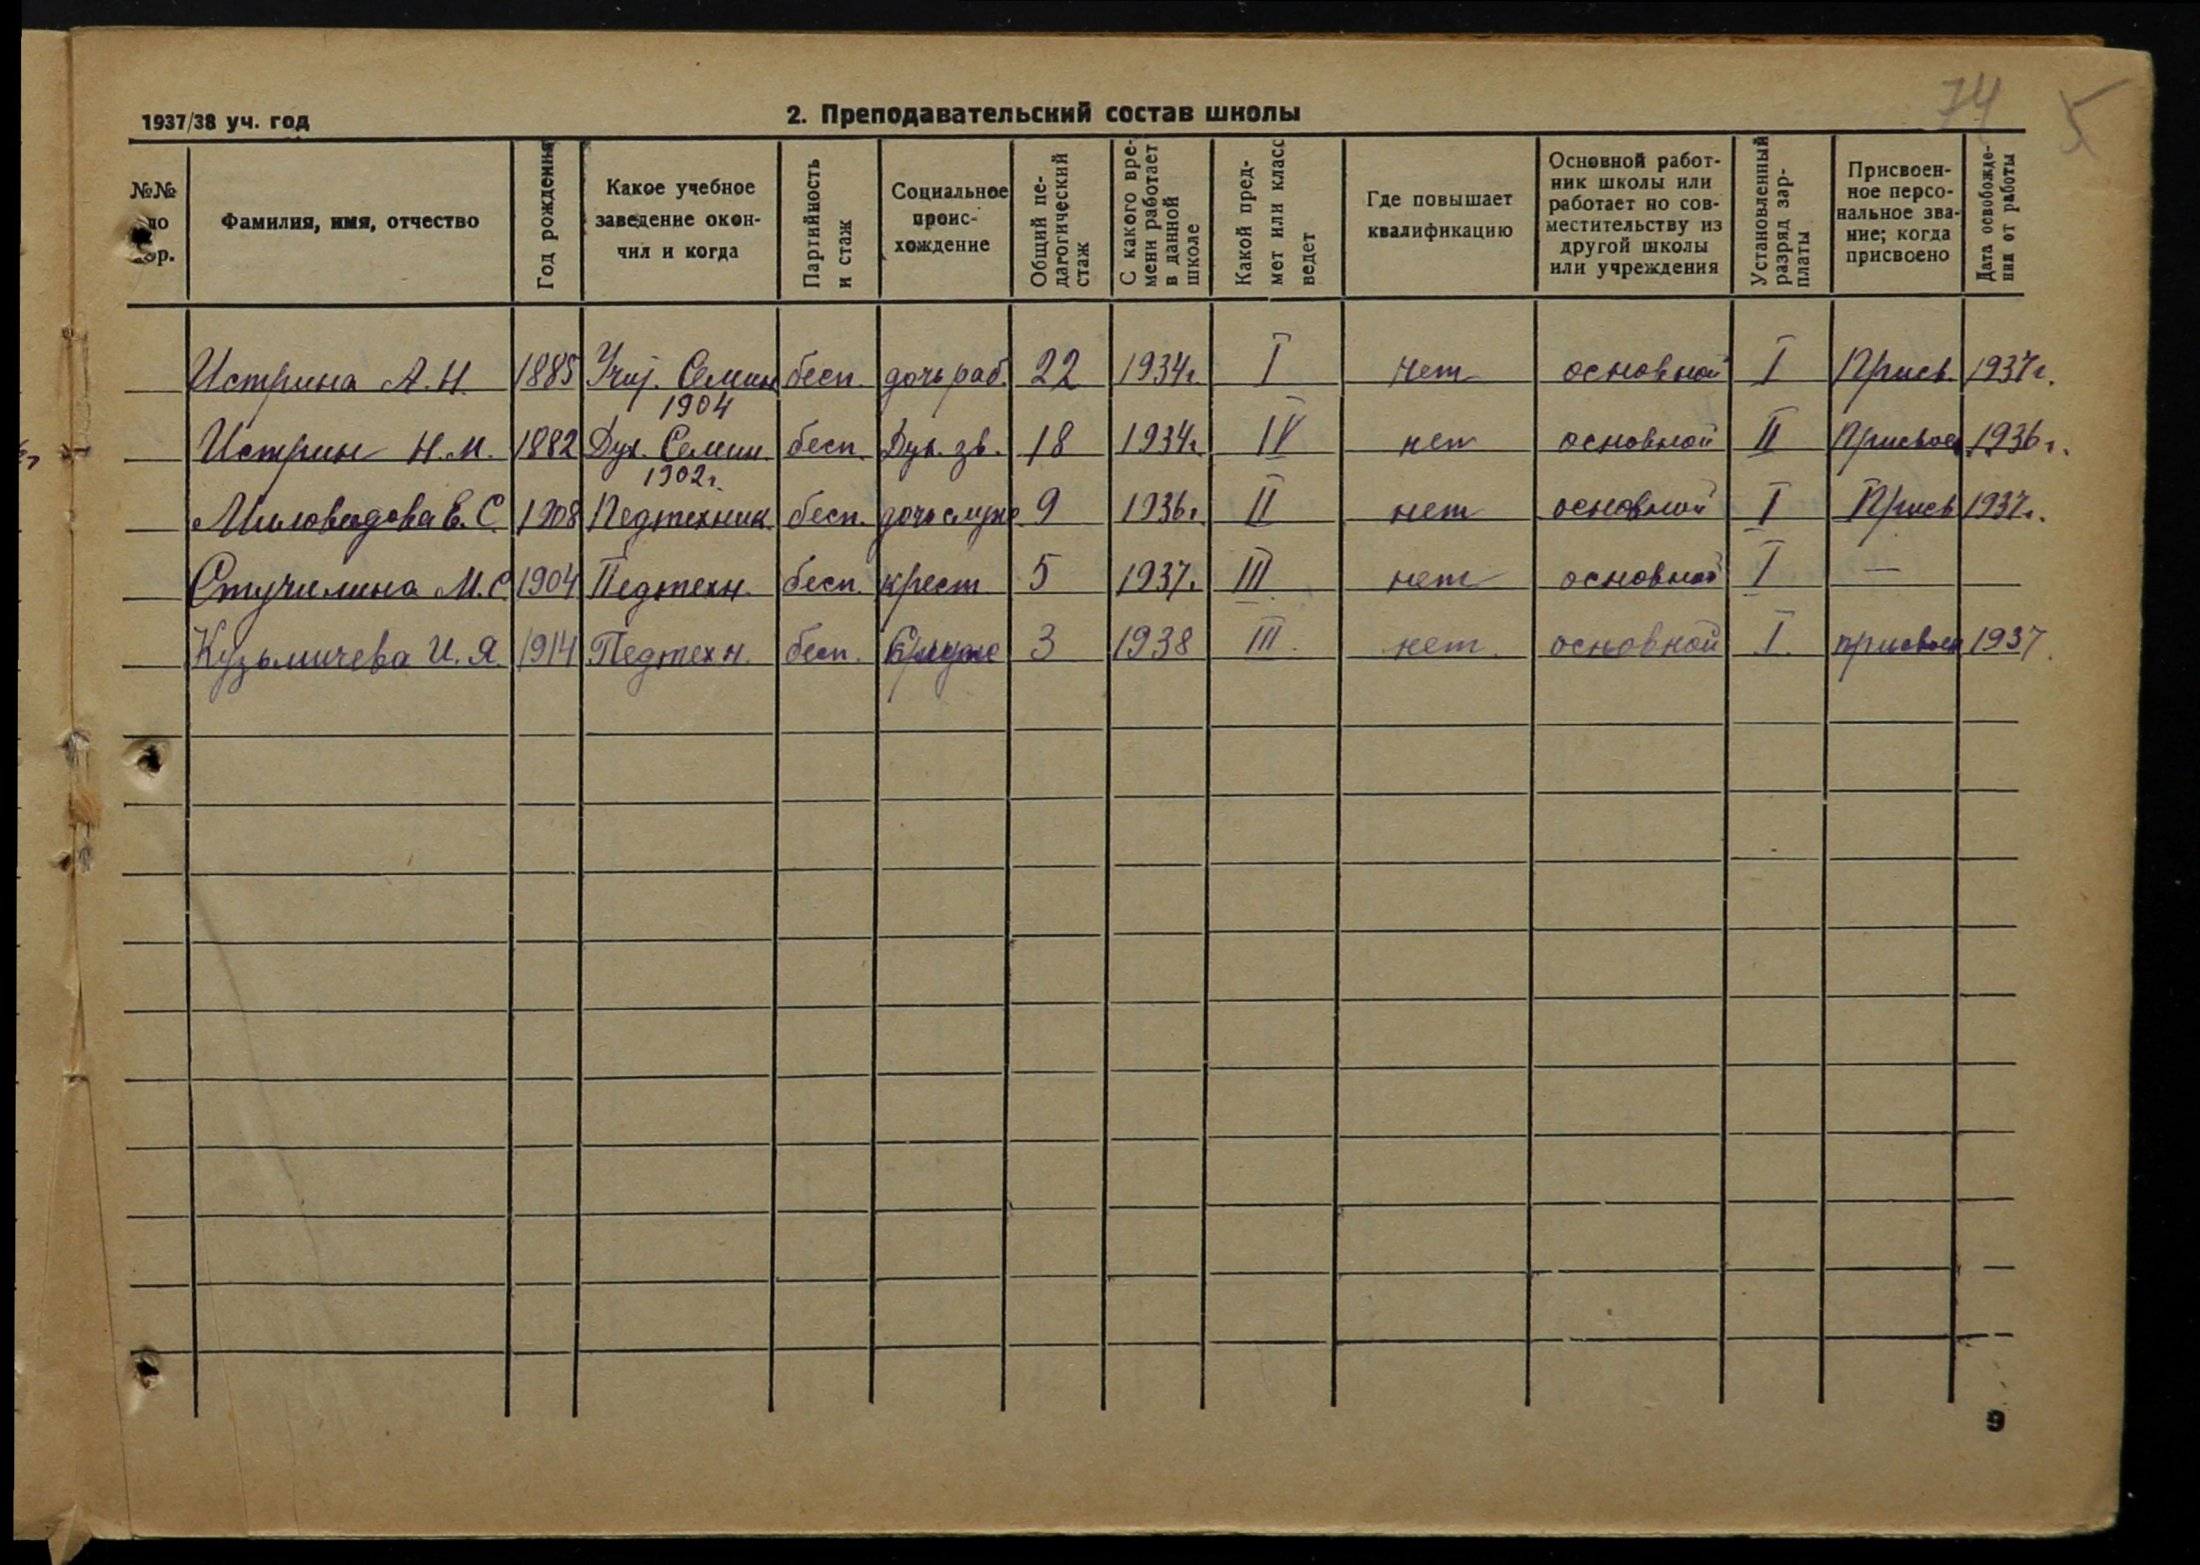 74 5
1937/38 уч. год
2. Преподавательский состав школы
№№ по пор.
Фамилия, имя, отчество
Год рождения
Какое учебное заведение окончил и когда
Партийность и стаж
Социальное происхождение
Общий педагогический стаж
С какого времени работает в данной школе
Какой предмет или класс ведет
Где повышает квалификацию
Основной работник школы или работает по совместительству из другой школы или учреждения
Установленный разряд зарплаты
Присвоенное персональное звание; когда присвоено
Дата освобождения от работы
Истрина А. Н. 1885 Семин 1904 бесп. дочь раб. 22 1934г. I нет основной I Присв. 1937г.
Истрин Н. М. 1882 Дух. Семин. 1902г. бесп. Дух. зв. 18 1934г IV нет основной II Присвоен 1936г.
Миловидова Е. С. 1908 Педтехник. бесп. дочь служ 9 1936г. II нет основной I Присв 1937г.
Стучилина М. С. 1904 Педтехн. бесп. крест 5 1937г. III нет основной I —
Кузьмичева И. Я. 1914 Педтехн. бесп. 3 1938 III. нет. основной I. присвоен 1937.
9